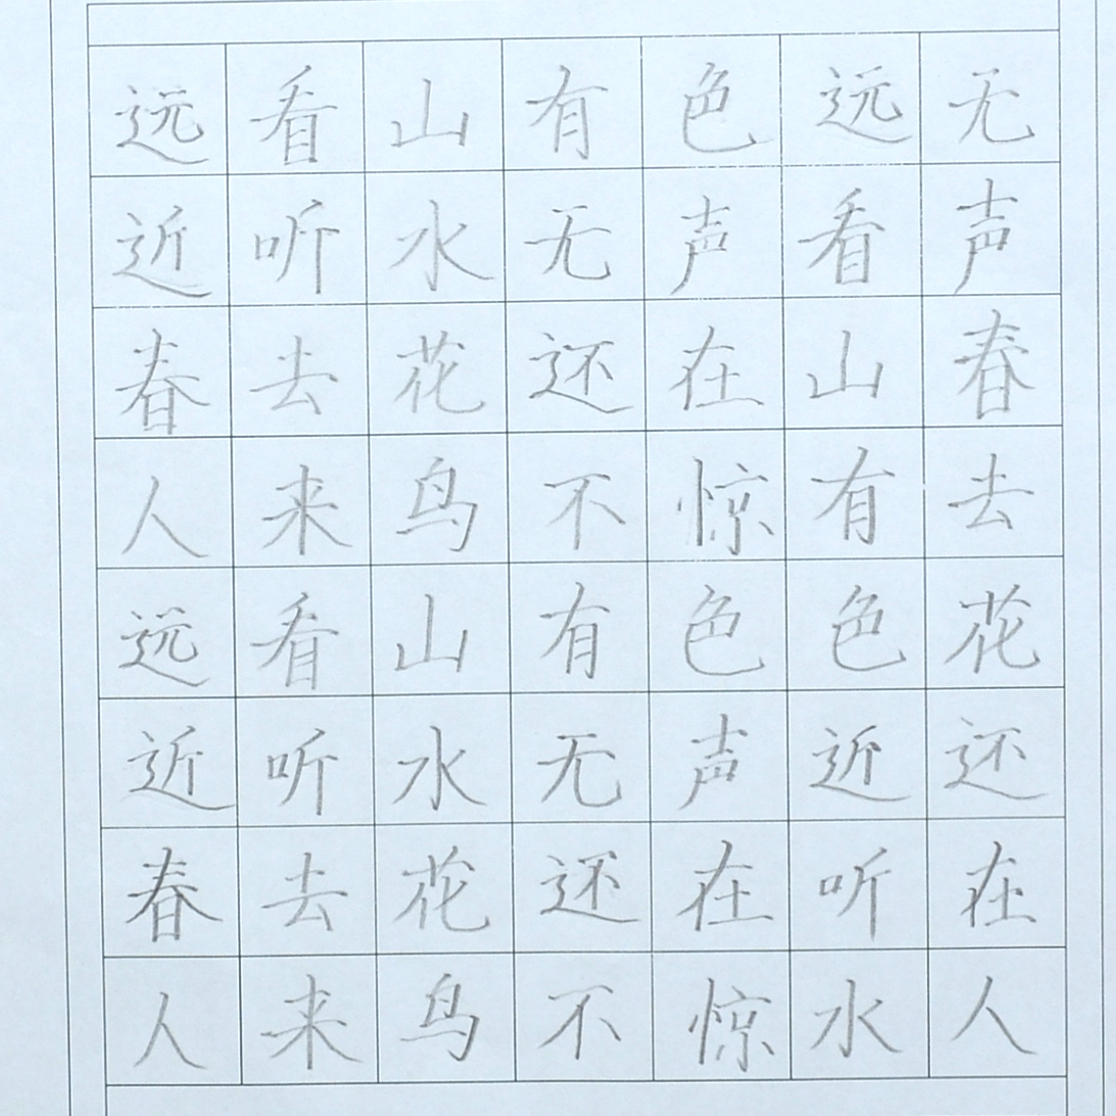 远看山有色远无
近听水无声看声
春去花还在山春
人来鸟不惊有去
远看山有色色花
近听水无声近还
春去花还在听在
人来鸟不惊水人